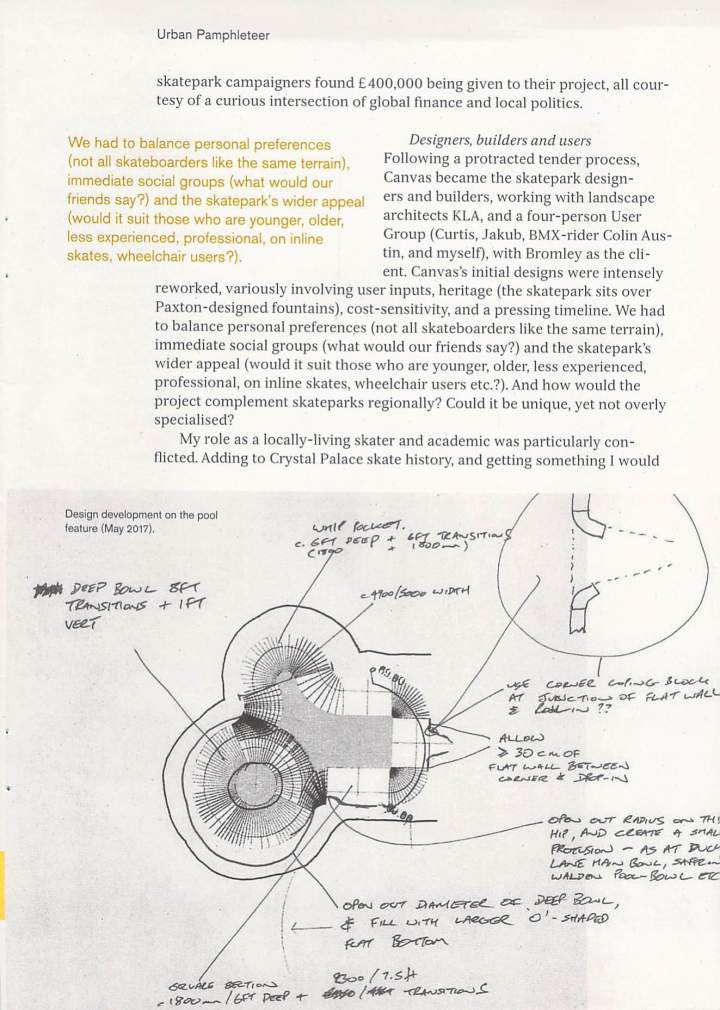 Urban Pamphleteer
skatepark campaigners found £400,000 being given to their project, all cour-
tesy of a curious intersection of global finance and local politics.
We had to balance personal preferences
(not all skateboarders like the same terrain),
immediate social groups (what would our
friends say?) and the skatepark's wider appeal
(would it suit those who are younger, older,
less experienced, professional, on inline
skates, wheelchair users?).
Designers, builders and users
Following a protracted tender process,
Canvas became the skatepark design-
ers and builders, working with landscape
architects KLA, and a four-person User
Group (Curtis, Jakub, BMX-rider Colin Aus-
tin, and myself), with Bromley as the cli-
ent. Canvas's initial designs were intensely
reworked, variously involving user inputs, heritage (the skatepark sits over
Paxton-designed fountains), cost-sensitivity, and a pressing timeline. We had
to balance personal preferences (not all skateboarders like the same terrain),
immediate social groups (what would our friends say?) and the skatepark's
wider appeal (would it suit those who are younger, older, less experienced,
professional, on inline skates, wheelchair users etc.?). And how would the
project complement skateparks regionally? Could it be unique, yet not overly
specialised?
My role as a locally-living skater and academic was particularly con-
flicted. Adding to Crystal Palace skate history, and getting something I would
Design development on the pool
feature (May 2017).
WHIP POCKET.
c. 6FT DEEP + 6FT TRANSITIONS
(1800 + 1800mm)
DEEP BOWL 8FT
TRANSITIONS + 1FT
VERT
c 4900/5000 WIDTH
USE CORNER COPING BLOCK
AT JUNCTION OF FLAT WALL
& ROLL-IN ??
ALLOW
≥ 30cm OF
FLAT WALL BETWEEN
CORNER & DROP-IN
OPEN OUT RADIUS ON THIS
HIP, AND CREATE A SMAL
PROTUSION - AS AT DUCK
LANE MAIN BOWL, SAFFRON
WALDEN POOL-BOWL ETC
OPEN OUT DIAMETER OF DEEP BOWL,
& FILL WITH LARGER 'O'-SHAPED
FLAT BOTTOM
SQUARE SECTION 2300/7.5ft
c 1800mm/6FT DEEP + TRANSITIONS